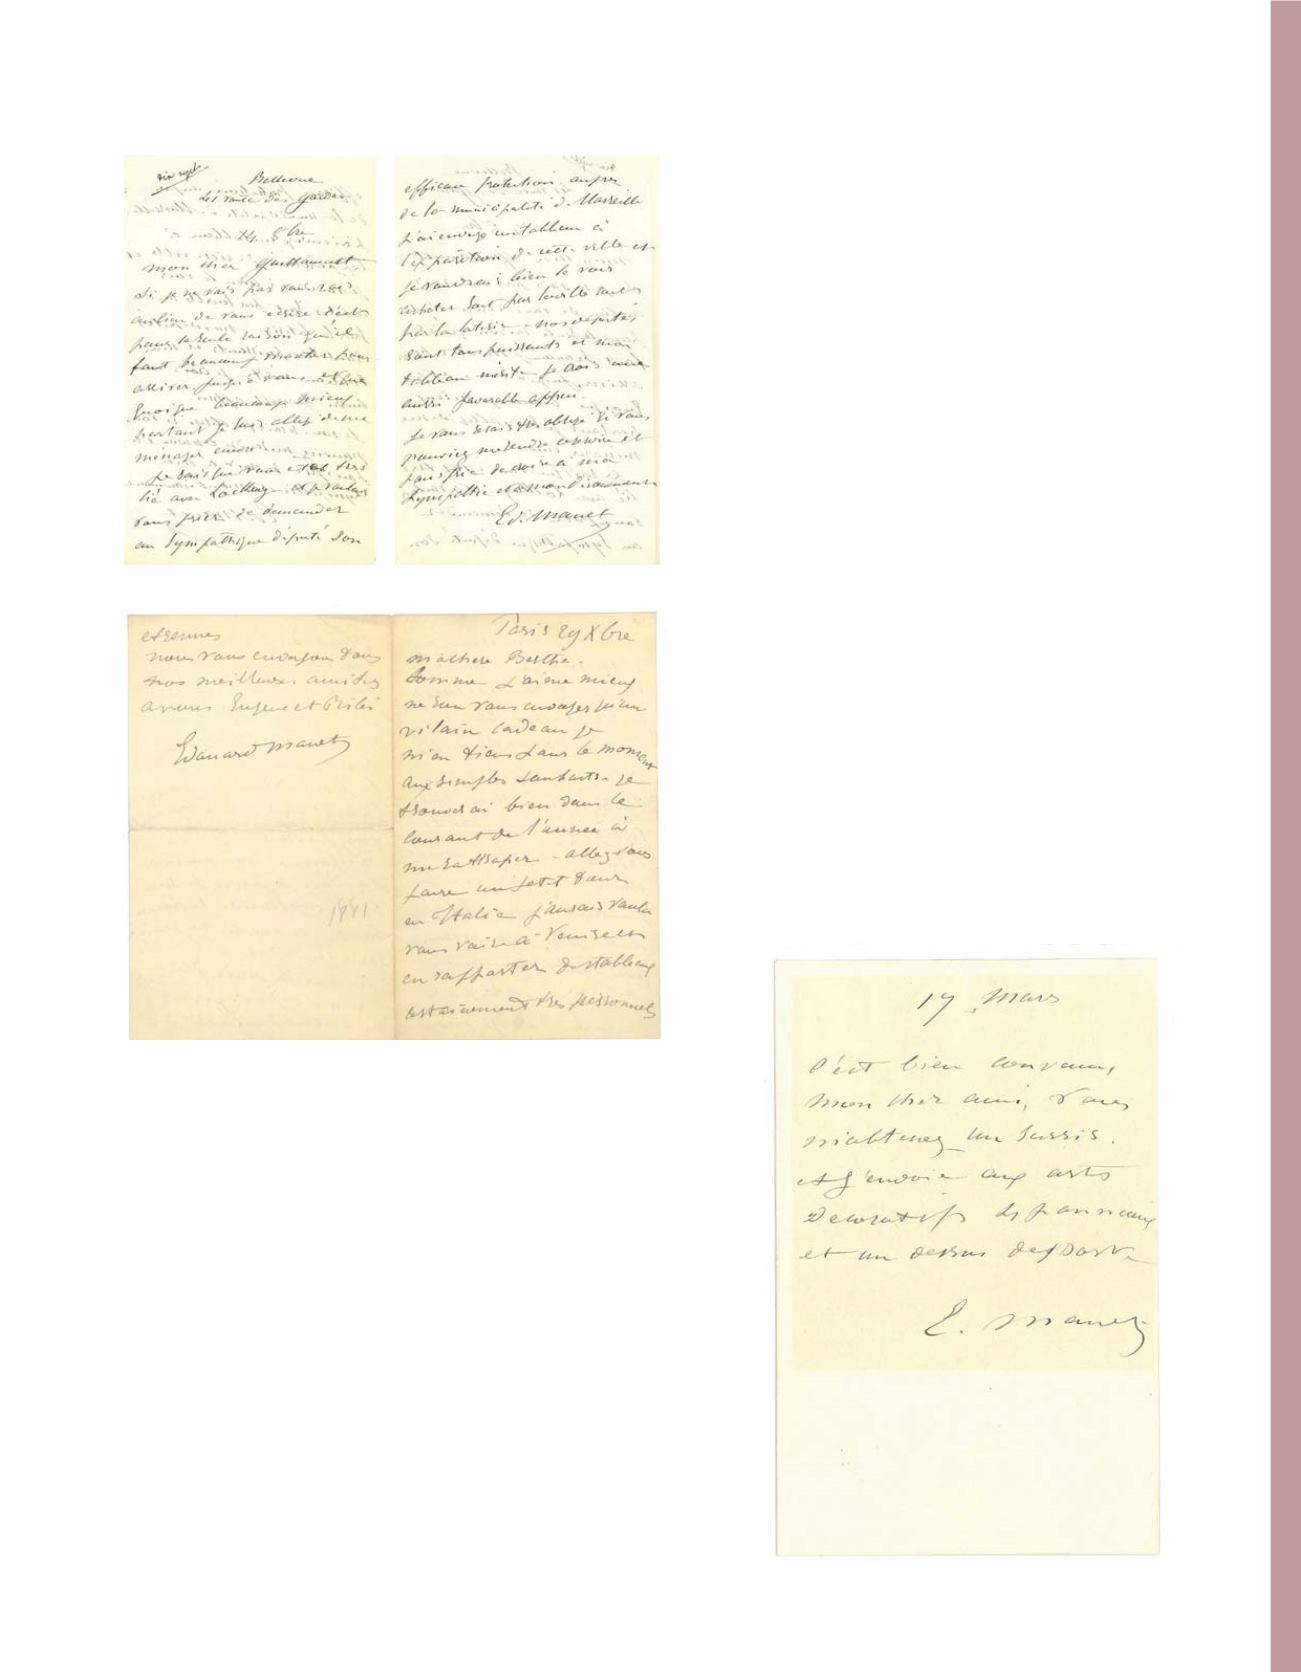 Bellevue
41 route des Gardes
mon cher Guillemet
Si je ne vais pas vous voir
au lieu de vous écrire c'est
pour la seule raison qu'il
faut beaucoup monter pour
arriver jusqu'à vous et que
quoique beaucoup mieux
portant je suis obligé de me
ménager encore
je sais que vous êtes très
lié avec Lockroy et voulais
vous prier de demander
au sympathique député son
efficace protection auprès
de la municipalité de Marseille
j'ai envoyé un tableau à
l'exposition de cette ville et
je voudrais bien le voir
acheter soit par la ville soit
par la loterie - nos députés
sont tous puissants et mon
tableau mérite je crois
aussi favorable appui
je vous serais très obligé si vous
pouviez me rendre ce service et
vous prie de croire à ma
sympathie et à mon dévouement
Ed. Manet
étrennes
nous vous envoyons tous
nos meilleures amitiés
à vous Eugène et Bibi
Edouard Manet
1881
Paris 29 Xbre
ma chère Berthe.
Comme j'aime mieux
ne rien vous envoyer qu'un
vilain cadeau je
m'en tiens dans le moment
aux simples souhaits - je
trouverai bien dans le
courant de l'année à
me rattraper - allez vous
faire un petit tour
en Italie j'aurais voulu
vous voir à Venise et
en rapporter des tableaux
certainement très personnels
17 Mars
C'est bien convenu,
mon cher ami, vous
m'obtenez un sursis.
et j'envoie aux arts
décoratifs les panneaux
et un dessus de porte
E. Manet